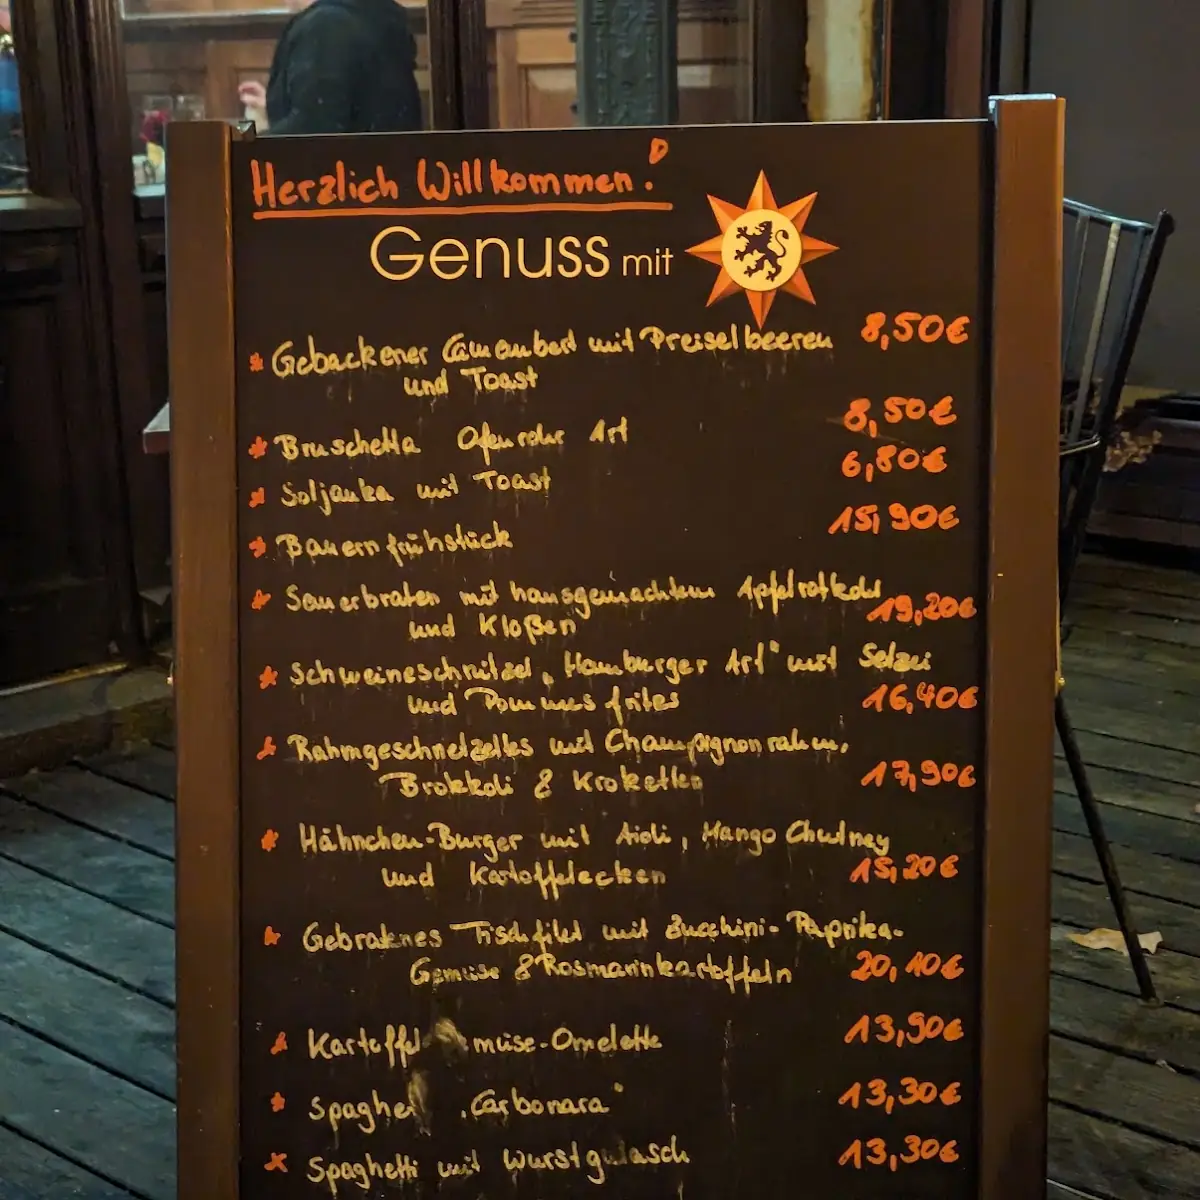 Herzlich Willkommen!
Genuss mit
* Gebackener Camembert mit Preiselbeeren 8,50€
und Toast
* Bruschetta Ofenrohr Art 8,50€
* Soljanka mit Toast 6,80€
* Bauernfrühstück 15,90€
* Sauerbraten mit hausgemachtem Apfelrotkohl
und Kloßen 19,20€
* Schweineschnitzel „Hamburger Art" mit Setzei
und Pommes frites 16,40€
* Rahmgeschnetzeltes mit Champignonrahm,
Brokkoli & Kroketten 17,90€
* Hähnchen-Burger mit Aioli, Mango Chutney
und Kartoffelecken 15,20€
* Gebratenes Fischfilet mit Zucchini-Paprika-
Gemüse & Rosmarinkartoffeln 20,10€
* Kartoffel müse-Omelette 13,90€
* Spaghe „Carbonara" 13,30€
* Spaghetti mit Wurstgulasch 13,30€